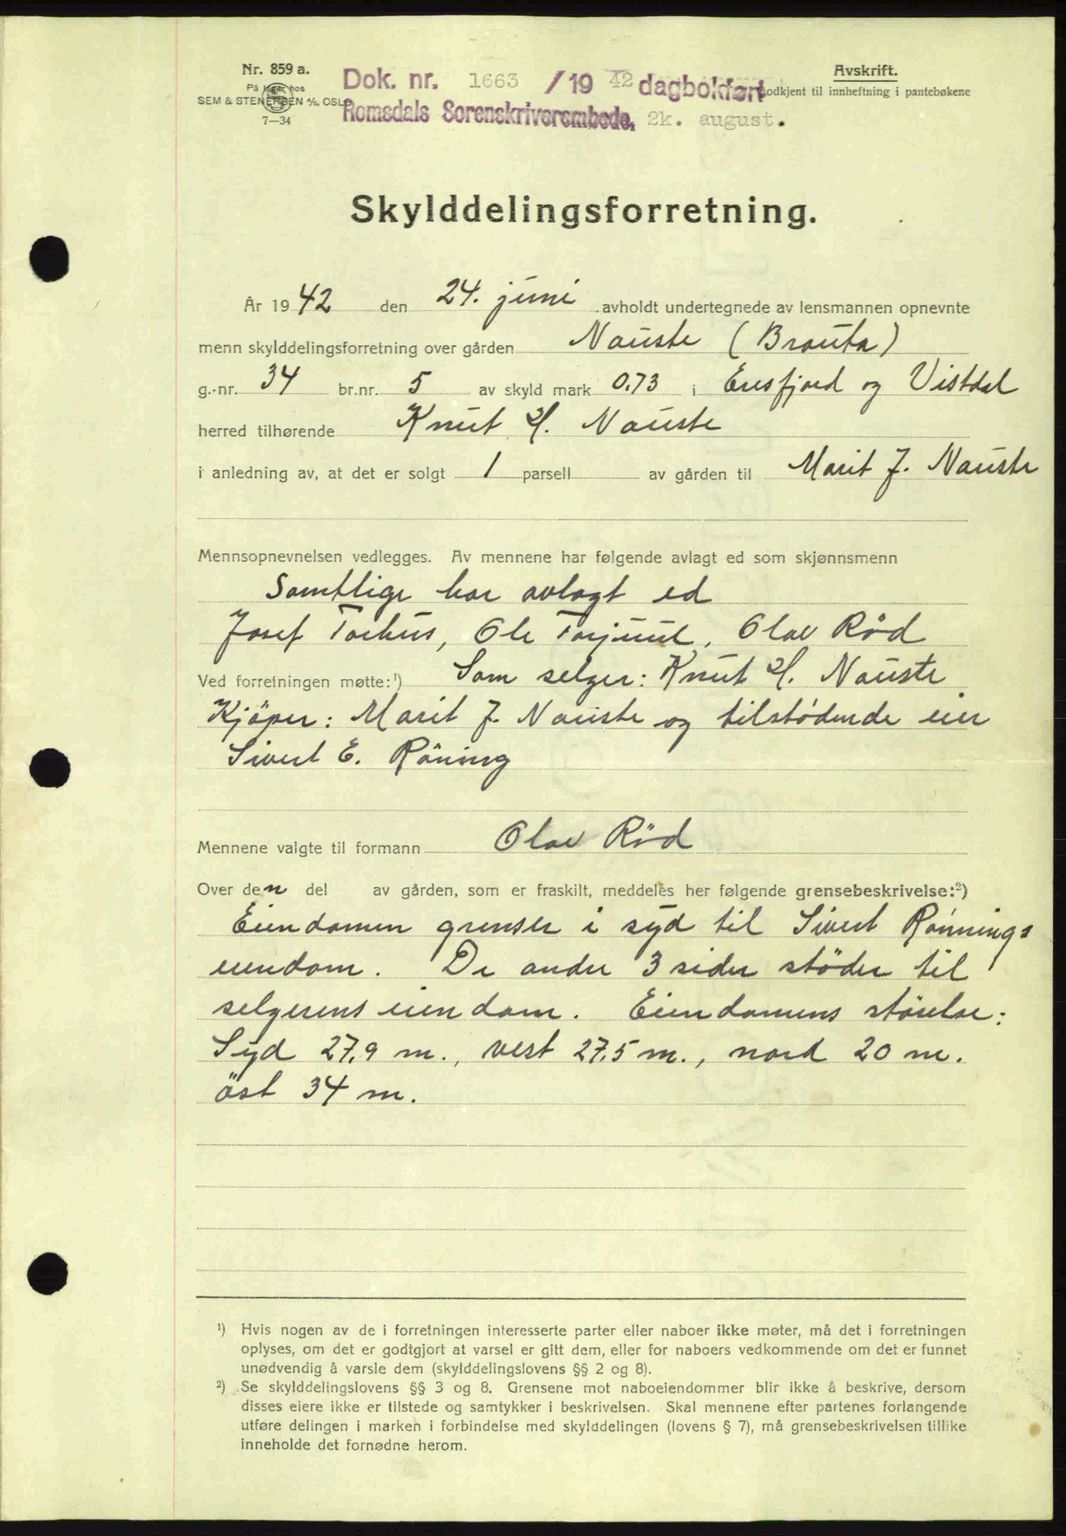 Nr. 859 a.
På lager hos
SEM & STENERSEN A/S, OSLO
7—34
Dok. nr. 1663 / 19 42 dagbokført
Romsdals Sorenskriverembede, 2k. august.
Avskrift.
Godkjent til innheftning i pantebøkene
Skylddelingsforretning.
År 1942 den 24. juni avholdt undertegnede av lensmannen opnevnte
menn skylddelingsforretning over gården Nauste (Brauta)
g.-nr. 34 br.nr. 5 av skyld mark 0.73 i Eresfjord og Vistdal
herred tilhørende Knut H. Nauste
i anledning av, at det er solgt 1 parsell av gården til Marit J. Nauste
Mennsopnevnelsen vedlegges. Av mennene har følgende avlagt ed som skjønnsmenn
Samtlige har avlagt ed
Josef Torhus, Ole Torjuul, Olav Rød
Ved forretningen møtte:¹) Som selger: Knut H. Nauste
Kjöper: Marit J. Nauste og tilstødende eier
Sivert E. Röning
Mennene valgte til formann Olav Rød
Over den del av gården, som er fraskilt, meddeles her følgende grensebeskrivelse:²)
Eiendomen grenser i syd til Sivert Rönnings
eiendom. De andre 3 sider støder til
selgerens eiendom. Eiendomens størelse:
Syd 27,9 m., vest 27.5 m., nord 20 m.
öst 34 m.
¹) Hvis nogen av de i forretningen interesserte parter eller naboer ikke møter, må det i forretningen
oplyses, om det er godtgjort at varsel er gitt dem, eller for naboers vedkommende om det er funnet
unødvendig å varsle dem (skylddelingslovens §§ 2 og 8).
²) Se skylddelingslovens §§ 3 og 8. Grensene mot naboeiendommer blir ikke å beskrive, dersom
disses eiere ikke er tilstede og samtykker i beskrivelsen. Skal mennene efter partenes forlangende
utføre delingen i marken i forbindelse med skylddelingen (lovens § 7), må grensebeskrivelsen tillike
inneholde det fornødne herom.